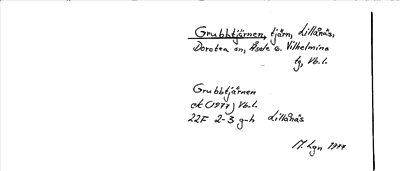 Grubbtjärnen, tjärn, Lillånäs,
Dorotea sn, Åsele o. Vilhelmina
tg, Vb.l.
Grubbtjärnen
ek (1977) Vb.l.
22F 2-3 g-h Lillånäs
M. Lgn 1977